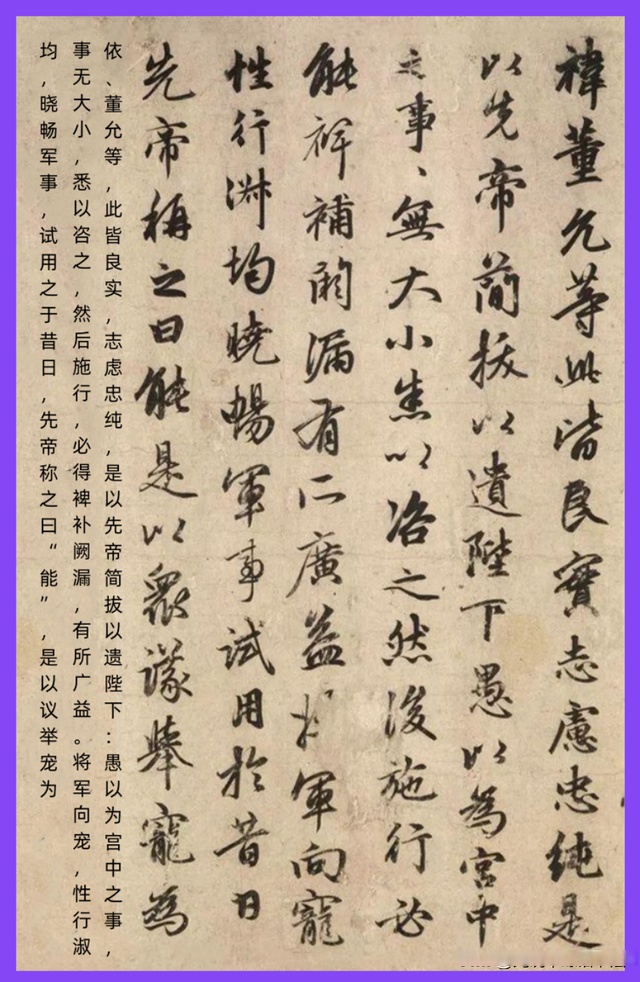 禕董允等此皆良實志慮忠純是
以先帝簡拔以遺陛下愚以為宮中
之事、無大小悉以咨之然後施行必
能裨補闕漏有所廣益将軍向寵
性行淑均曉暢軍事試用於昔日
先帝稱之曰能是以衆議舉寵為
依、董允等，此皆良实，志虑忠纯，是以先帝简拔以遗陛下：愚以为宫中之事，
事无大小，悉以咨之，然后施行，必得裨补阙漏，有所广益。将军向宠，性行淑
均，晓畅军事，试用之于昔日，先帝称之曰“能”，是以议举宠为